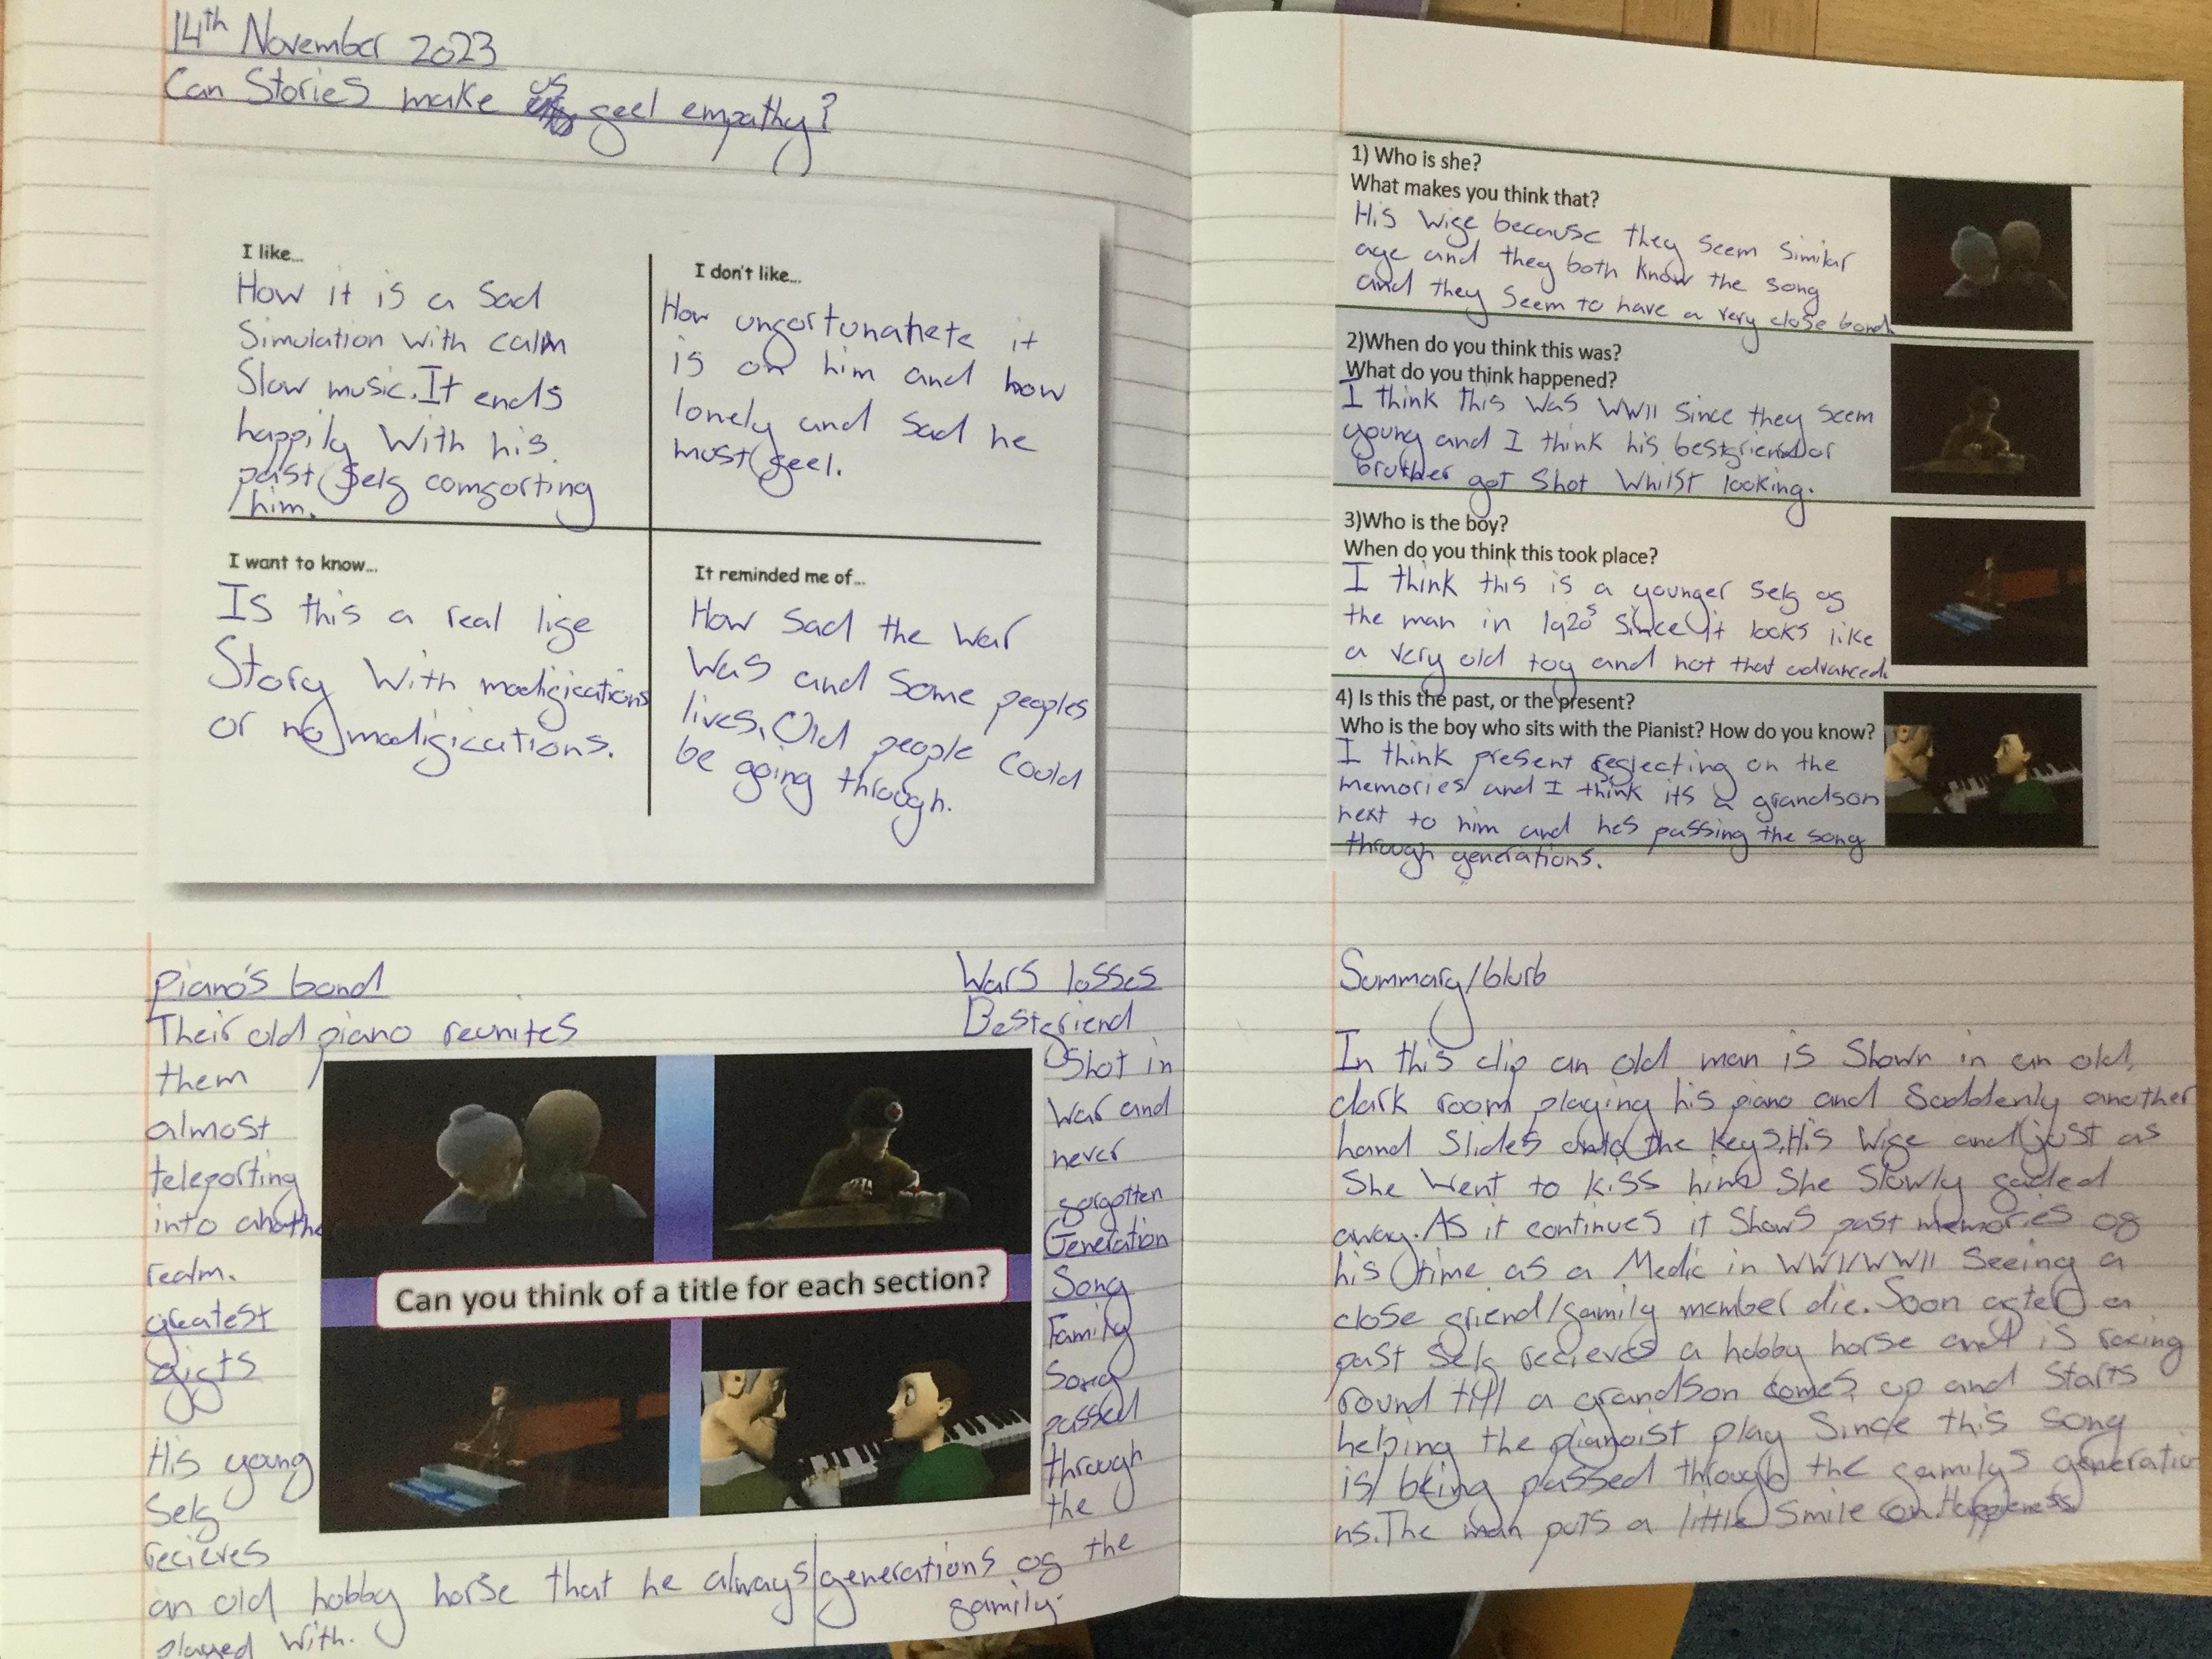 14th November 2023
Can Stories make us feel empathy?
I like...
How it is a sad
Simulation with calm
Slow music. It ends
happily With his
past self comforting
him.
I don't like...
How unfortunatete it
is on him and how
lonely and sad he
must feel.
I want to know...
Is this a real life
Story With modifications
or no modifications.
It reminded me of...
How sad the war
was and some peoples
lives. Old people could
be going through.
Piano's bond
Their old piano reunites
them
almost
teleporting
into anothe
realm.
greatest
gifts
His young
Self
recieves
an old hobby horse that he always
played with.
Wars losses
Bestfriend
Shot in
War and
never
forgotten
Generation
Song
Family
Song
passed
through
the
generations of the
family.
Can you think of a title for each section?
1) Who is she?
What makes you think that?
His Wife because they seem similar
age and they both know the song
and they seem to have a very close bond
2)When do you think this was?
What do you think happened?
I think this was WWII since they seem
young and I think his bestfriend or
brother got Shot Whilst looking.
3)Who is the boy?
When do you think this took place?
I think this is a younger self of
the man in 1920s since it looks like
a very old toy and not that advanced.
4) Is this the past, or the present?
Who is the boy who sits with the Pianist? How do you know?
I think present reflecting on the
memories and I think its a grandson
next to him and hes passing the song
through generations.
Summary/blurb
In this clip an old man is Shown in an old,
dark room playing his piano and Suddenly another
hand Slides onto the keys. His Wife and just as
She Went to kiss him She Slowly faded
away. As it continues it Shows past memories of
his time as a Medic in WWI/WWII Seeing a
close friend/family member die. Soon after a
past Self recieves a hobby horse and is racing
round till a grandson comes up and Starts
helping the pianoist play Since this song
is being passed through the familys generatio
ns. The man puts a little Smile on. Happeness